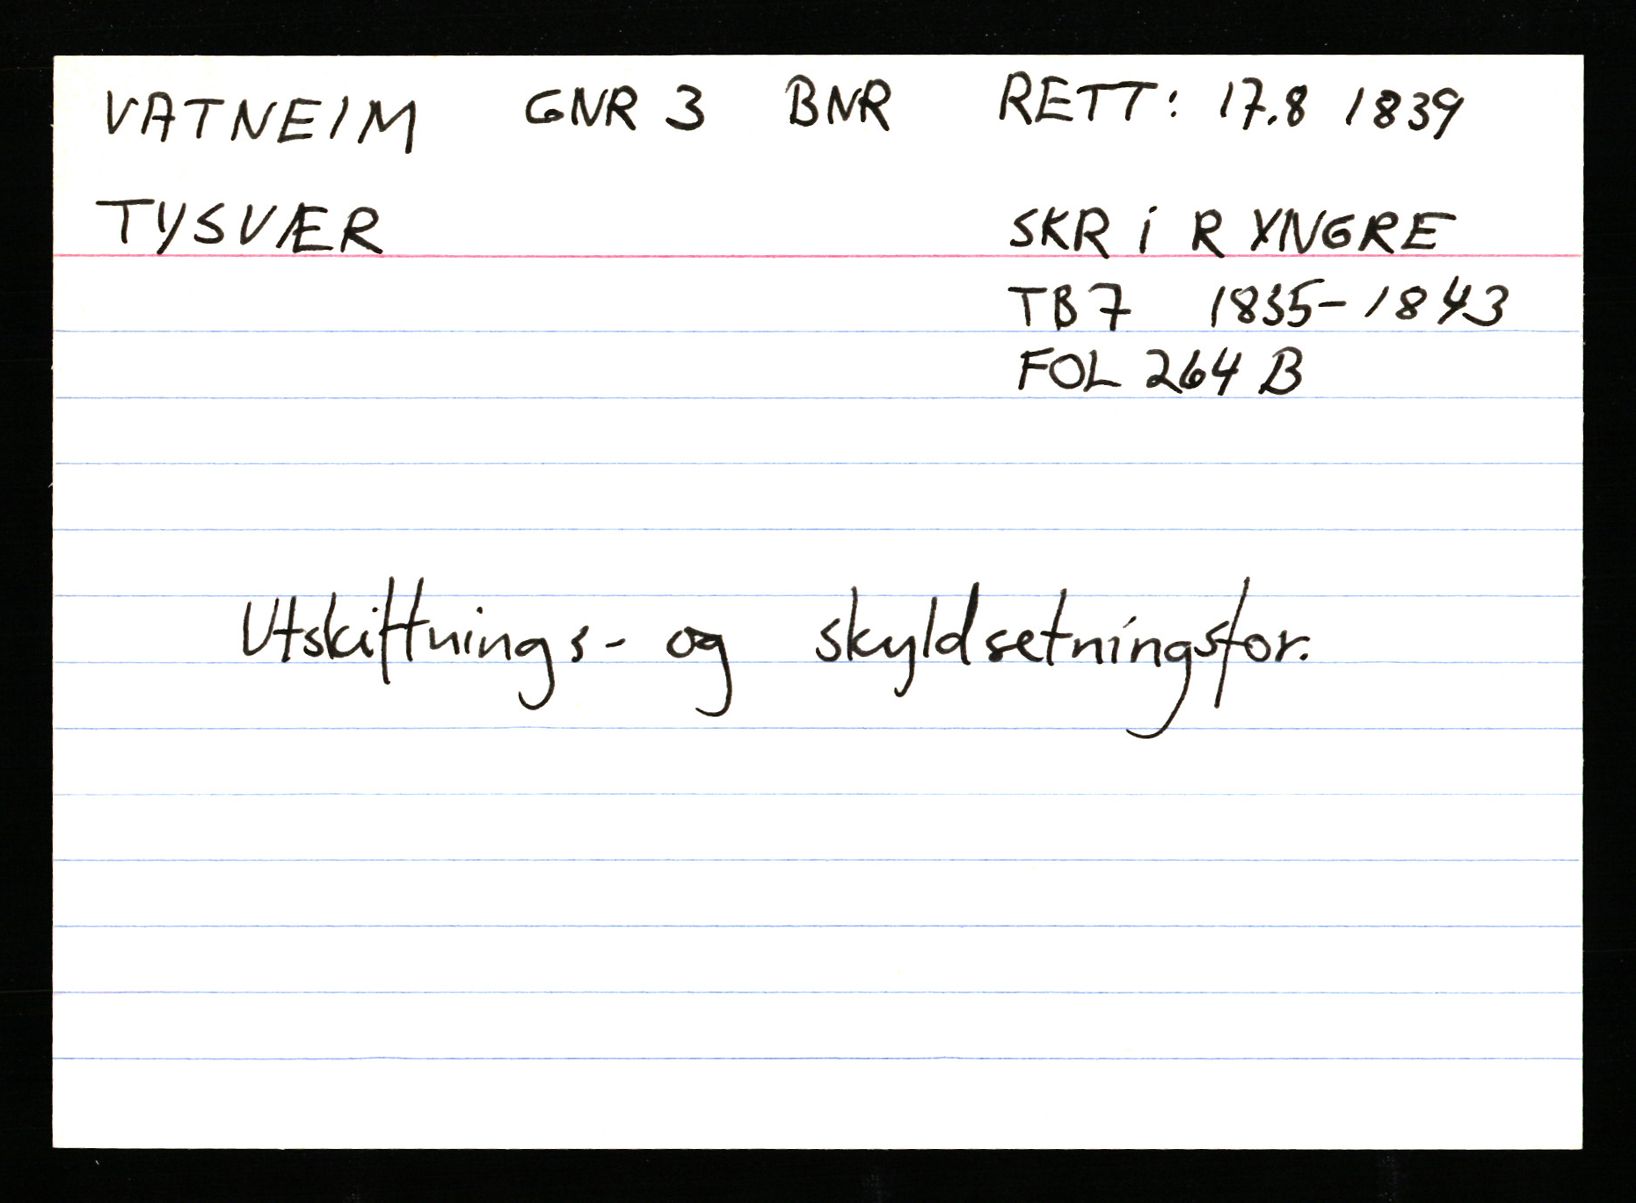 VATNEIM GNR 3 BNR RETT: 17.8 1839
TYSVÆR SKR i R YNGRE
TB 7 1835-1843
FOL 264 B
Utskiftnings- og skyldsetningsfor.